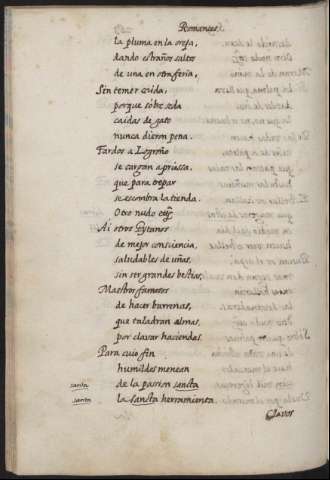 Romances.
la pluma en la oreja,
dando estraños saltos
de una en otra feria,
Sin temer caida,
porque sobre toda
caidas de gato
nunca dieron pena.
Fardos a Logroño
se cargan apriessa,
que para trepar
se escombra la tienda.
Otro nudo
Ai otros Gytanos
de mejor consciencia,
saludables de uñas,
sin ser grandes bestias,
Maestros famosos
de hacer barrenas,
que taladran almas,
por clavar haciendas.
Para cuio fin
humildes menean
santa de la passion sancta
santa la sancta herramienta.
Clavos